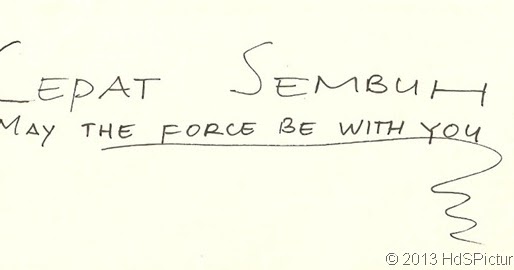 CEPAT SEMBUH
MAY THE FORCE BE WITH YOU
© 2013 HdSPictur